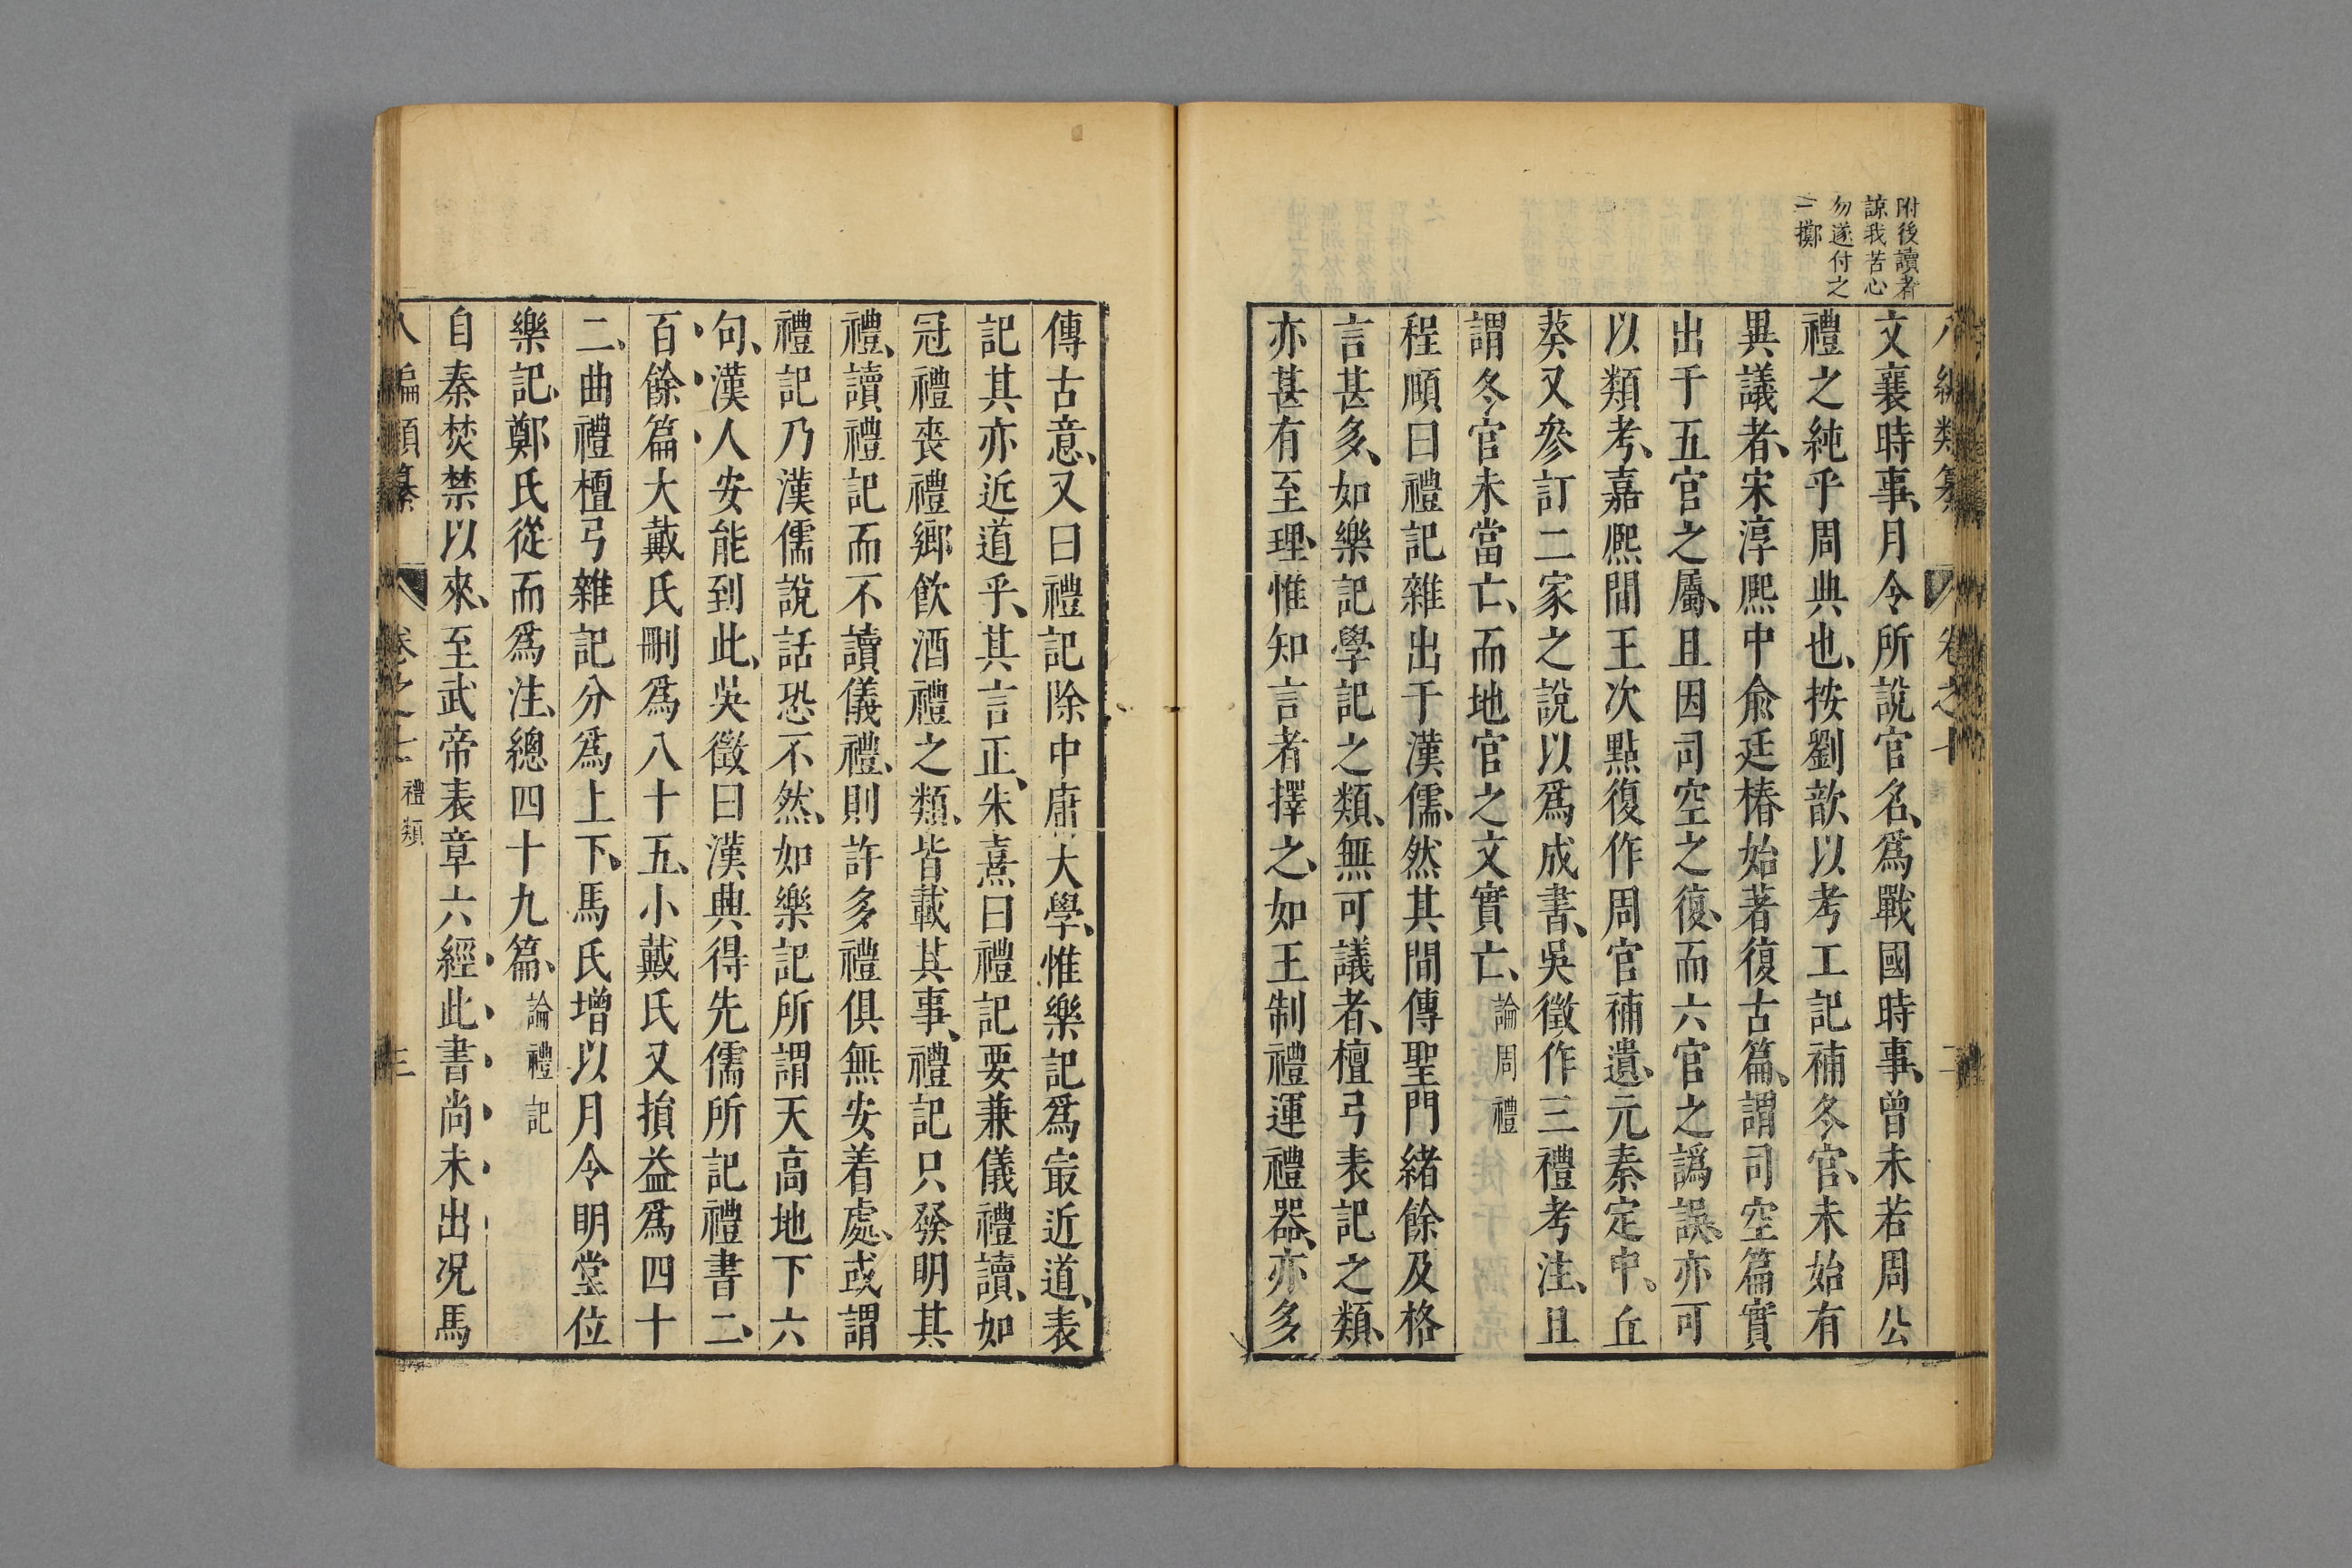 附後讀者
諒我苦心
勿遂付之
一擲
八編類纂 卷之七 二
文襄時事、月令所說官名、爲戰國時事、曾未若周公
禮之純乎周典也、按劉歆以考工記補冬官、未始有
異議者、宋淳熙中俞廷椿始著復古篇、謂司空篇實
出于五官之屬、且因司空之復、而六官之譌誤、亦可
以類考、嘉熙間王次點復作周官補遺、元泰定中、丘
葵又參訂二家之說以爲成書、吳徵作三禮考注、且
謂冬官未當亡、而地官之文實亡、論周禮
程頤曰禮記雜出于漢儒、然其間傳聖門緒餘及格
言甚多、如樂記學記之類、無可議者、檀弓表記之類、
亦甚有至理、惟知言者擇之、如王制禮運禮器、亦多
傳古意、又曰禮記除中庸大學、惟樂記爲㝡近道、表
記其亦近道乎、其言正、朱熹曰禮記要兼儀禮讀、如
冠禮喪禮鄉飲酒禮之類、皆載其事、禮記只發明其
禮、讀禮記而不讀儀禮、則許多禮俱無安着處、或謂
禮記乃漢儒說話恐不然、如樂記所謂天高地下六
句、漢人安能到此、吳徵曰漢興得先儒所記禮書二、
百餘篇大戴氏刪爲八十五、小戴氏又損益爲四十
二、曲禮檀弓雜記分爲上下、馬氏增以月令明堂位
樂記、鄭氏從而爲注、總四十九篇、論禮記
自秦焚禁以來、至武帝表章六經、此書尚未出况馬
八編類纂 卷之七 禮類 三